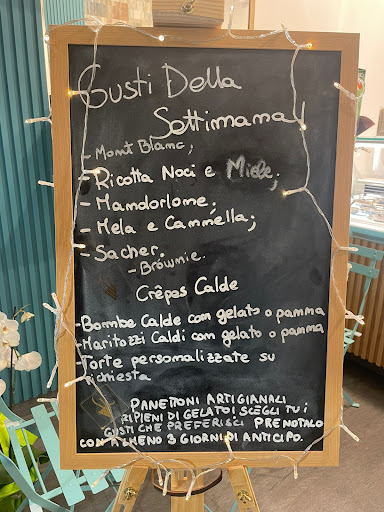 Gusti Della
Settimana!
- Mont Blanc;
- Ricotta Noci e Miele;
- Mandorlone;
- Mela e Cannella;
- Sacher;
- Brownie.
Crêpes Calde
- Bombe Calde con gelato o panna
- Maritozzi Caldi con gelato o panna
- Torte personalizzate su
richiesta
PANETTONI ARTIGIANALI
RIPIENI DI GELATO! SCEGLI TU I
GUSTI CHE PREFERISCI PRENOTALO
CON ALMENO 3 GIORNI DI ANTICIPO.